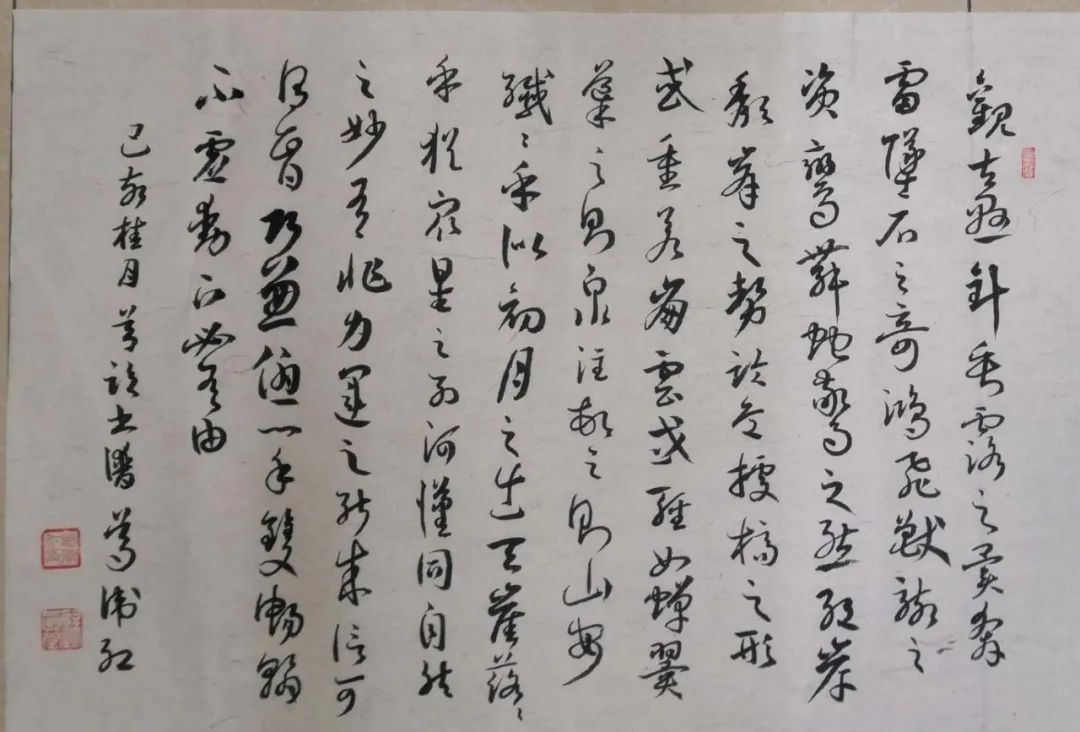 觀夫懸針垂露之異奔
雷墜石之奇鴻飛獸駭之
資鸞舞蛇驚之態絕岸
頹峯之勢臨危據槁之形
或重若崩雲或輕如蟬翼
導之則泉注頓之則山安
纖〻乎似初月之出天崖落〻
乎猶眾星之列河漢同自然
之妙有非力運之能成信可
謂智巧兼優心手雙暢翰
不虛動下必有由
己亥桂月節臨書譜